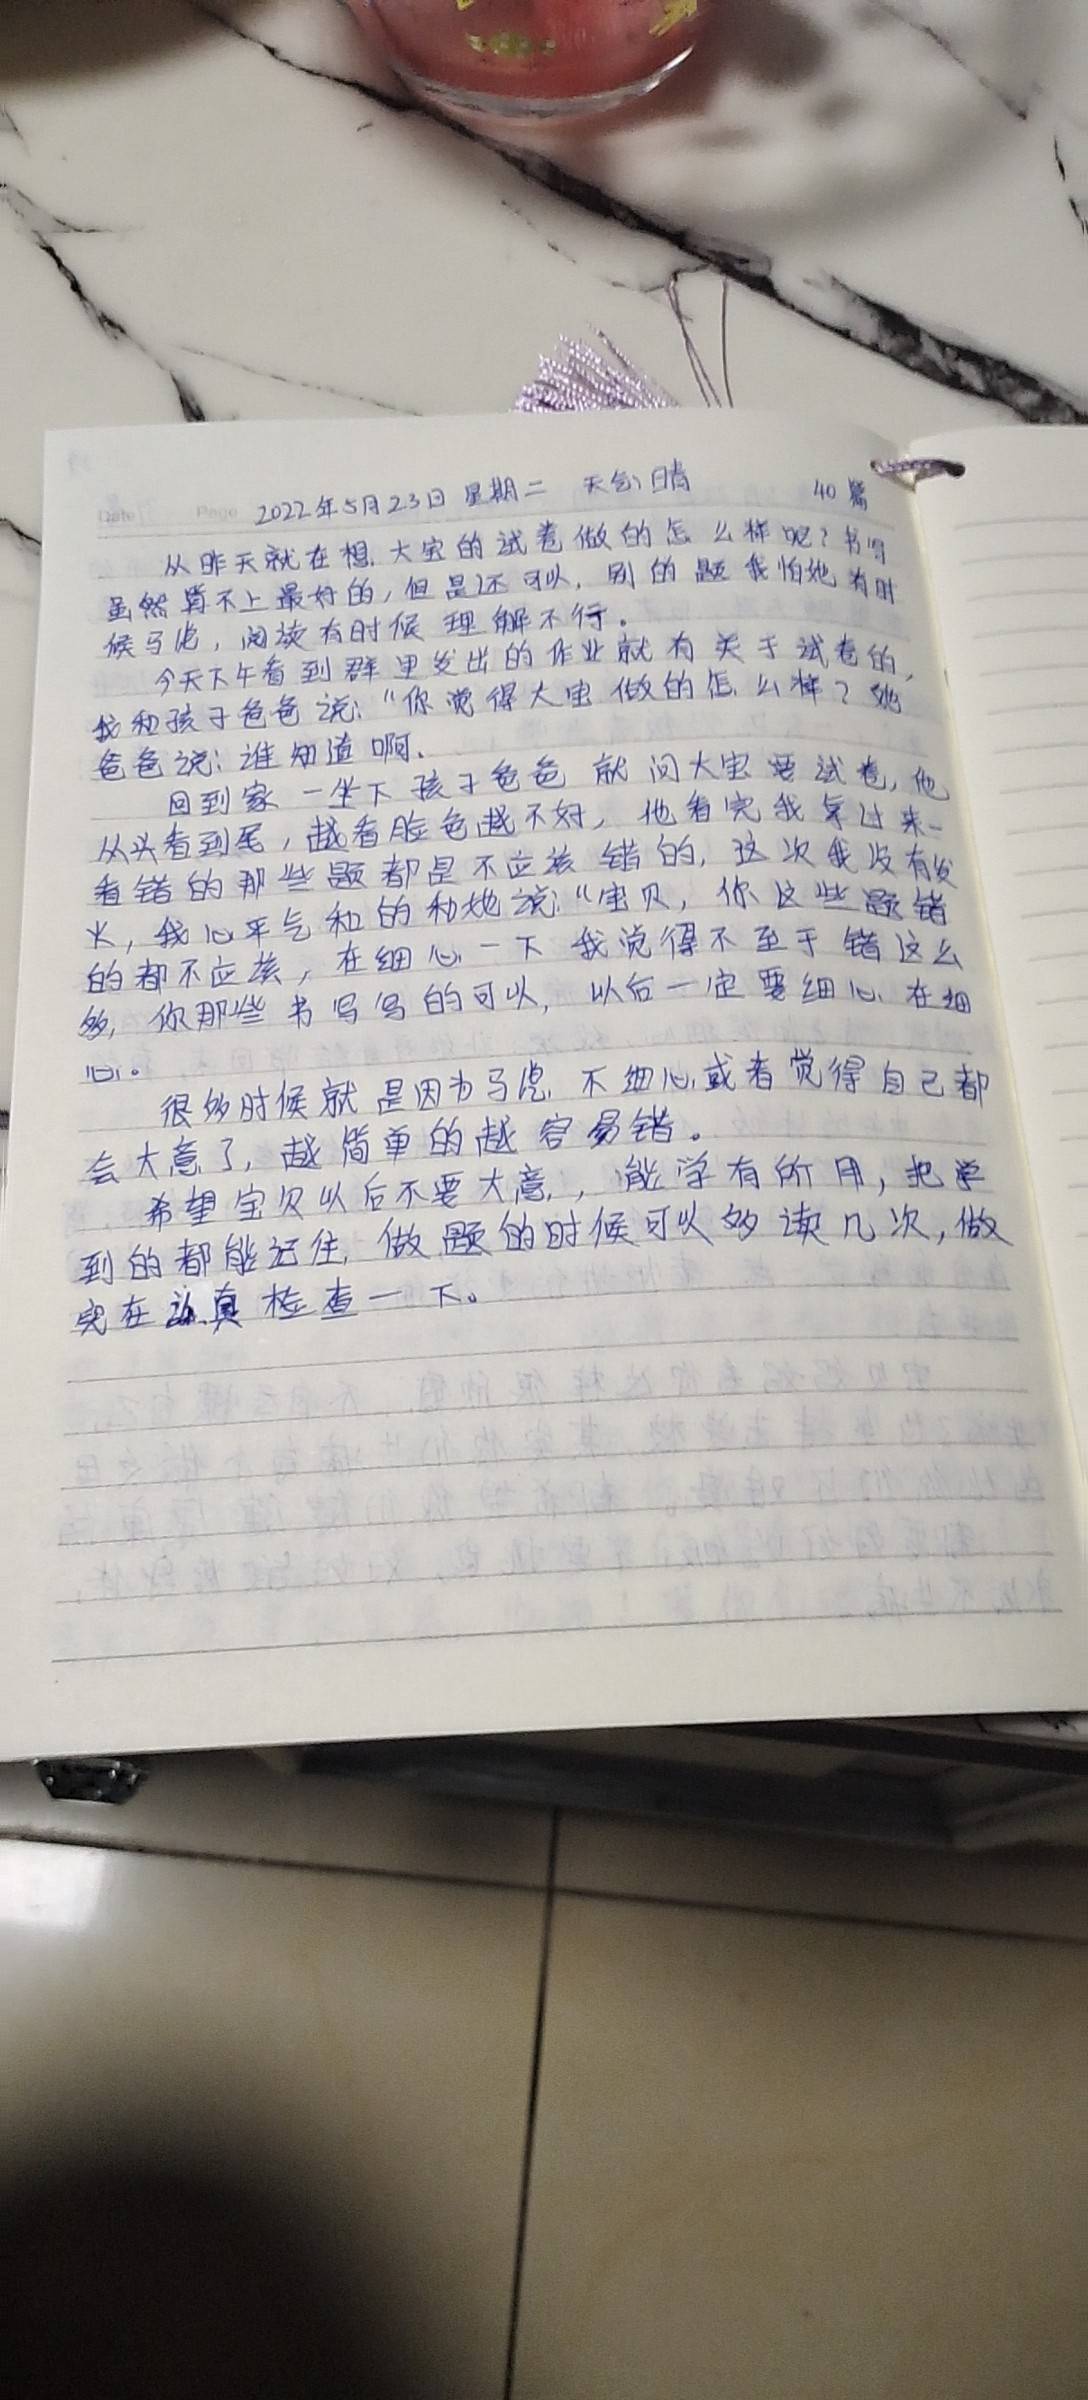 2022年5月23日 星期二 天气:晴 40篇
从昨天就在想,大宝的试卷做的怎么样呢?书写
虽然算不上最好的,但是还可以,别的题我怕她有时
候马虎,阅读有时候理解不行。
今天下午看到群里发出的作业就有关于试卷的,
我和孩子爸爸说:“你觉得大宝做的怎么样?她
爸爸说:谁知道啊.
回到家一坐下孩子爸爸就问大宝要试卷,他
从头看到尾,越看脸色越不好,他看完我拿过来一
看错的那些题都是不应该错的,这次我没有发
火,我心平气和的和她说:“宝贝,你这些题错
的都不应该,在细心一下我觉得不至于错这么
多,你那些书写写的可以,以后一定要细心在细
心。
很多时候就是因为马虎不细心或者觉得自己都
会大意了,越简单的越容易错。
希望宝贝以后不要大意,能学有所用,把学
到的都能记住,做题的时候可以多读几次,做
完在认真检查一下。
Date
Page